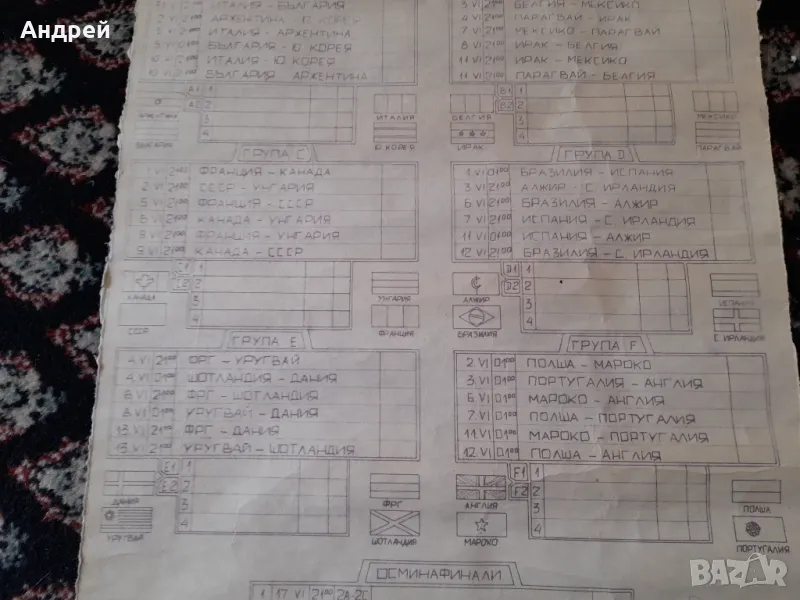 Андрей
ИТАЛИЯ - БЪЛГАРИЯ
АРЖЕНТИНА - Ю КОРЕЯ
ИТАЛИЯ - АРЖЕНТИНА
БЪЛГАРИЯ - Ю КОРЕЯ
ИТАЛИЯ - Ю КОРЕЯ
БЪЛГАРИЯ АРЖЕНТИНА
A1 1
A2 2
3
4
ИТАЛИЯ
Ю.КОРЕЯ
БЕЛГИЯ - МЕКСИКО
ПАРАГВАЙ - ИРАК
МЕКСИКО - ПАРАГВАЙ
8 VI 21⁰⁰ ИРАК - БЕЛГИЯ
11 VI 21⁰⁰ ИРАК - МЕКСИКО
11 VI 21⁰⁰ ПАРАГВАЙ - БЕЛГИЯ
B1 1
B2 2
3
4
БЕЛГИЯ
ИРАК
МЕКСИКО
ПАРАГВАЙ
ГРУПА C
ФРАНЦИЯ - КАНАДА
2 VI 21⁰⁰ СССР - УНГАРИЯ
ФРАНЦИЯ - СССР
КАНАДА - УНГАРИЯ
9 VI 21⁰⁰ ФРАНЦИЯ - УНГАРИЯ
9 VI 21⁰⁰ КАНАДА - СССР
C1 1
C2 2
3
4
КАНАДА
СССР
УНГАРИЯ
ФРАНЦИЯ
ГРУПА D
1 VI 01⁰⁰ БРАЗИЛИЯ - ИСПАНИЯ
3 VI 21⁰⁰ АЛЖИР - С. ИРЛАНДИЯ
6 VI 21⁰⁰ БРАЗИЛИЯ - АЛЖИР
7 VI 21⁰⁰ ИСПАНИЯ - С. ИРЛАНДИЯ
11 VI 01⁰⁰ ИСПАНИЯ - АЛЖИР
12 VI 21⁰⁰ БРАЗИЛИЯ - С. ИРЛАНДИЯ
D1 1
D2 2
3
4
АЛЖИР
БРАЗИЛИЯ
ИСПАНИЯ
С. ИРЛАНДИЯ
ГРУПА E
4 VI 21⁰⁰ ФРГ - УРУГВАЙ
4 VI 01⁰⁰ ШОТЛАНДИЯ - ДАНИЯ
8 VI 21⁰⁰ ФРГ - ШОТЛАНДИЯ
8 VI 01⁰⁰ УРУГВАЙ - ДАНИЯ
13 VI 21⁰⁰ ФРГ - ДАНИЯ
13 VI 21⁰⁰ УРУГВАЙ - ШОТЛАНДИЯ
E1 1
E2 2
3
4
ДАНИЯ
УРУГВАЙ
ФРГ
ШОТЛАНДИЯ
ГРУПА F
2 VI 01⁰⁰ ПОЛША - МАРОКО
3 VI 01⁰⁰ ПОРТУГАЛИЯ - АНГЛИЯ
6 VI 01⁰⁰ МАРОКО - АНГЛИЯ
7 VI 01⁰⁰ ПОЛША - ПОРТУГАЛИЯ
11 VI 01⁰⁰ МАРОКО - ПОРТУГАЛИЯ
12 VI 01⁰⁰ ПОЛША - АНГЛИЯ
F1 1
F2 2
3
4
АНГЛИЯ
МАРОКО
ПОЛША
ПОРТУГАЛИЯ
ОСМИНАФИНАЛИ
1 17 VI 21⁰⁰ 2A-2C
BAZAR